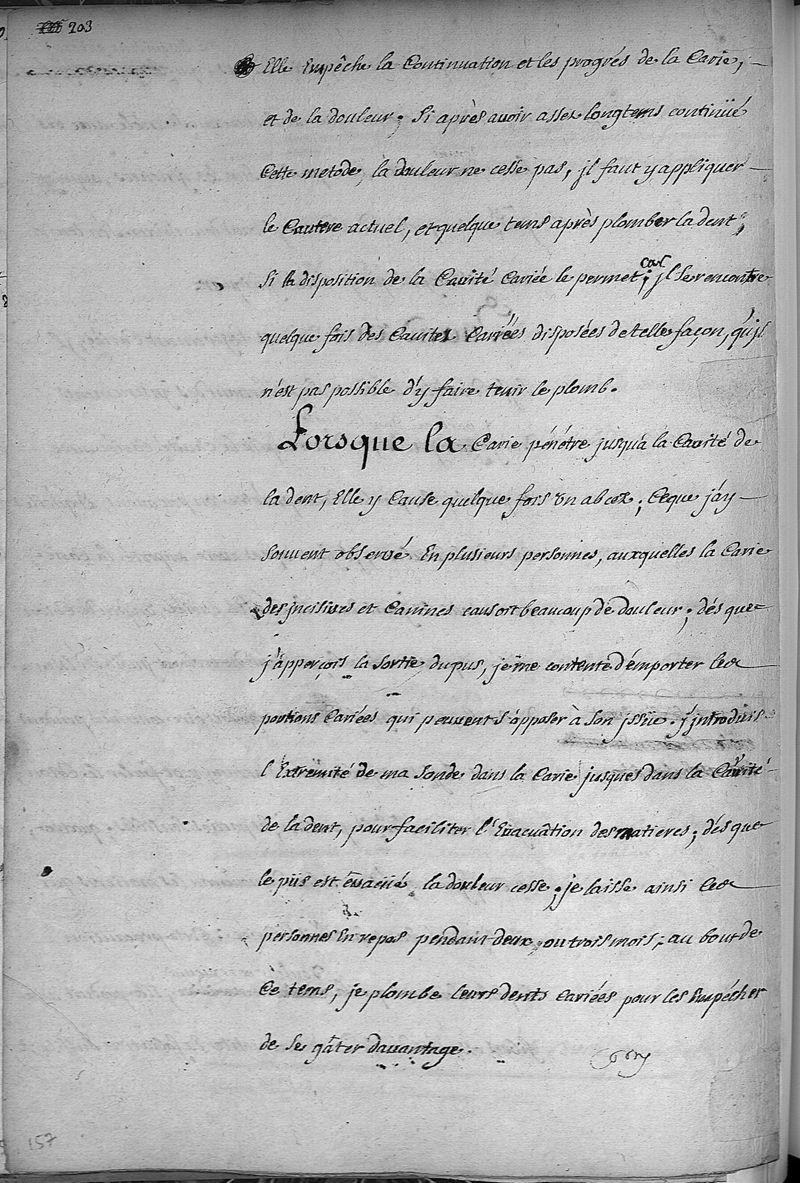 203
Elle Empêche la Continuation et les progrés de la Carie,
et de la douleur; Si après avoir assés longtems continüé
Cette metode, la douleur ne cesse pas, jl faut y appliquer
le Cautere actuel, et quelque tems après plomber la dent,
Si la disposition de la Cavité Cariée le permet; car jl se rencontre
quelque fois des Cavités Cariées disposées de telle façon, qu'jl
n'est pas possible d'y faire tenir le plomb.
Lorsque la Carie pénétre jusqu'a la Cavité de
la dent, Elle y Cause quelque fois un abcez; Ceque j'ay
Souvent observé En plusieurs personnes, auxquelles la Carie
des jncisives et Canines causoit beaucoup de douleur; dés que
j'apperçois la Sortie du pus, je me contente d'emporter les
portions Cariées qui peuvent s'apposer à Son jssüe. j'jntroduis
l'Extremité de ma Sonde dans la Carie jusques dans la Cavité
de la dent, pour faciliter l'Evacuâtion des matieres; dés que
le pus est évacüé, la douleur cesse; je laisse ainsi les
personnes En repos pendant deux, ou trois mois; au bout de
Ce tems, je plombe leurs dents Cariées pour les Empécher
de Se gâter davantage.
157